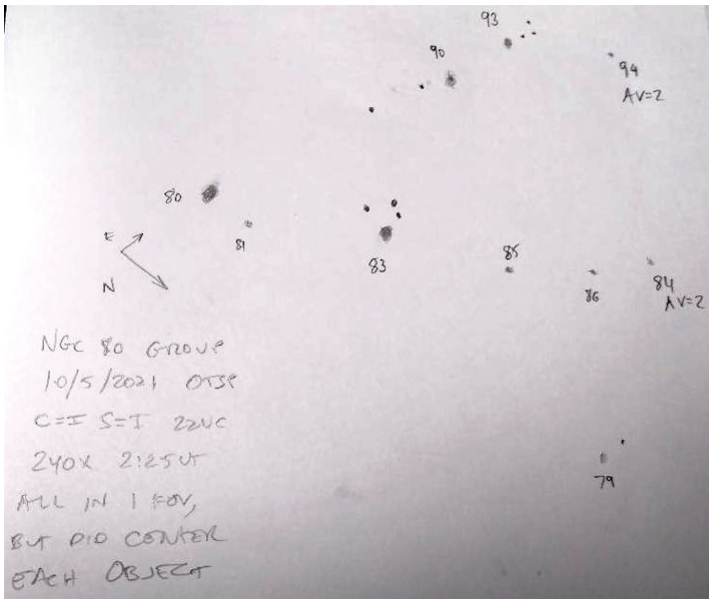 93
90
94
AV=2
80
81
E
83
85
N
86
84
AV=2
NGC 80 GROUP
10/5/2021 OTSP
C=I S=I 22UC
240X 2:25UT
ALL IN 1 FOV,
BUT DID CENTER
EACH OBJECT
79